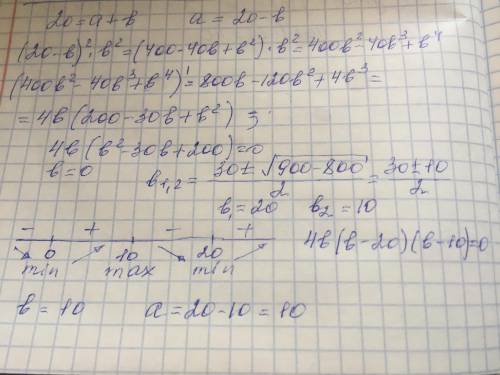 20=a+b    a=20-b
(20-b)²·b²=(400-40b+b²)·b²=400b²-40b³+b⁴
(400b²-40b³+b⁴)'=800b-120b²+4b³=
=4b(200-30b+b²)=
4b(b²-30b+200)=0
b=0    b₁,₂=(30±√(900-800))/2=(30±10)/2
b₁=20    b₂=10
- + - +
0 10 20    4b(b-20)(b-10)=0
min max min
b=10    a=20-10=10